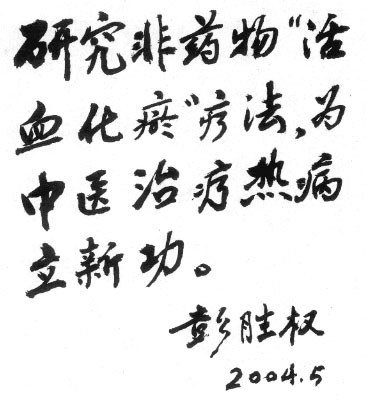 研究非药物“活
血化瘀”疗法,为
中医治疗热病
立新功。
彭胜权
2004.5